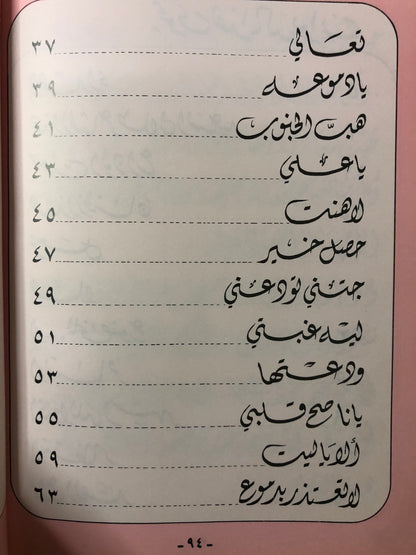 تعالي ٣٧
يا دموعه ٣٩
هبّ الجنوب ٤١
يا علي ٤٣
لاهنت ٤٥
حصل خير ٤٧
جتني تودعني ٤٩
ليه غبتي ٥١
ودعتها ٥٣
يا ناصح قلبي ٥٥
ألا ياليت ٥٩
لا تعتذر بدموع ٦٣
-٩٤-